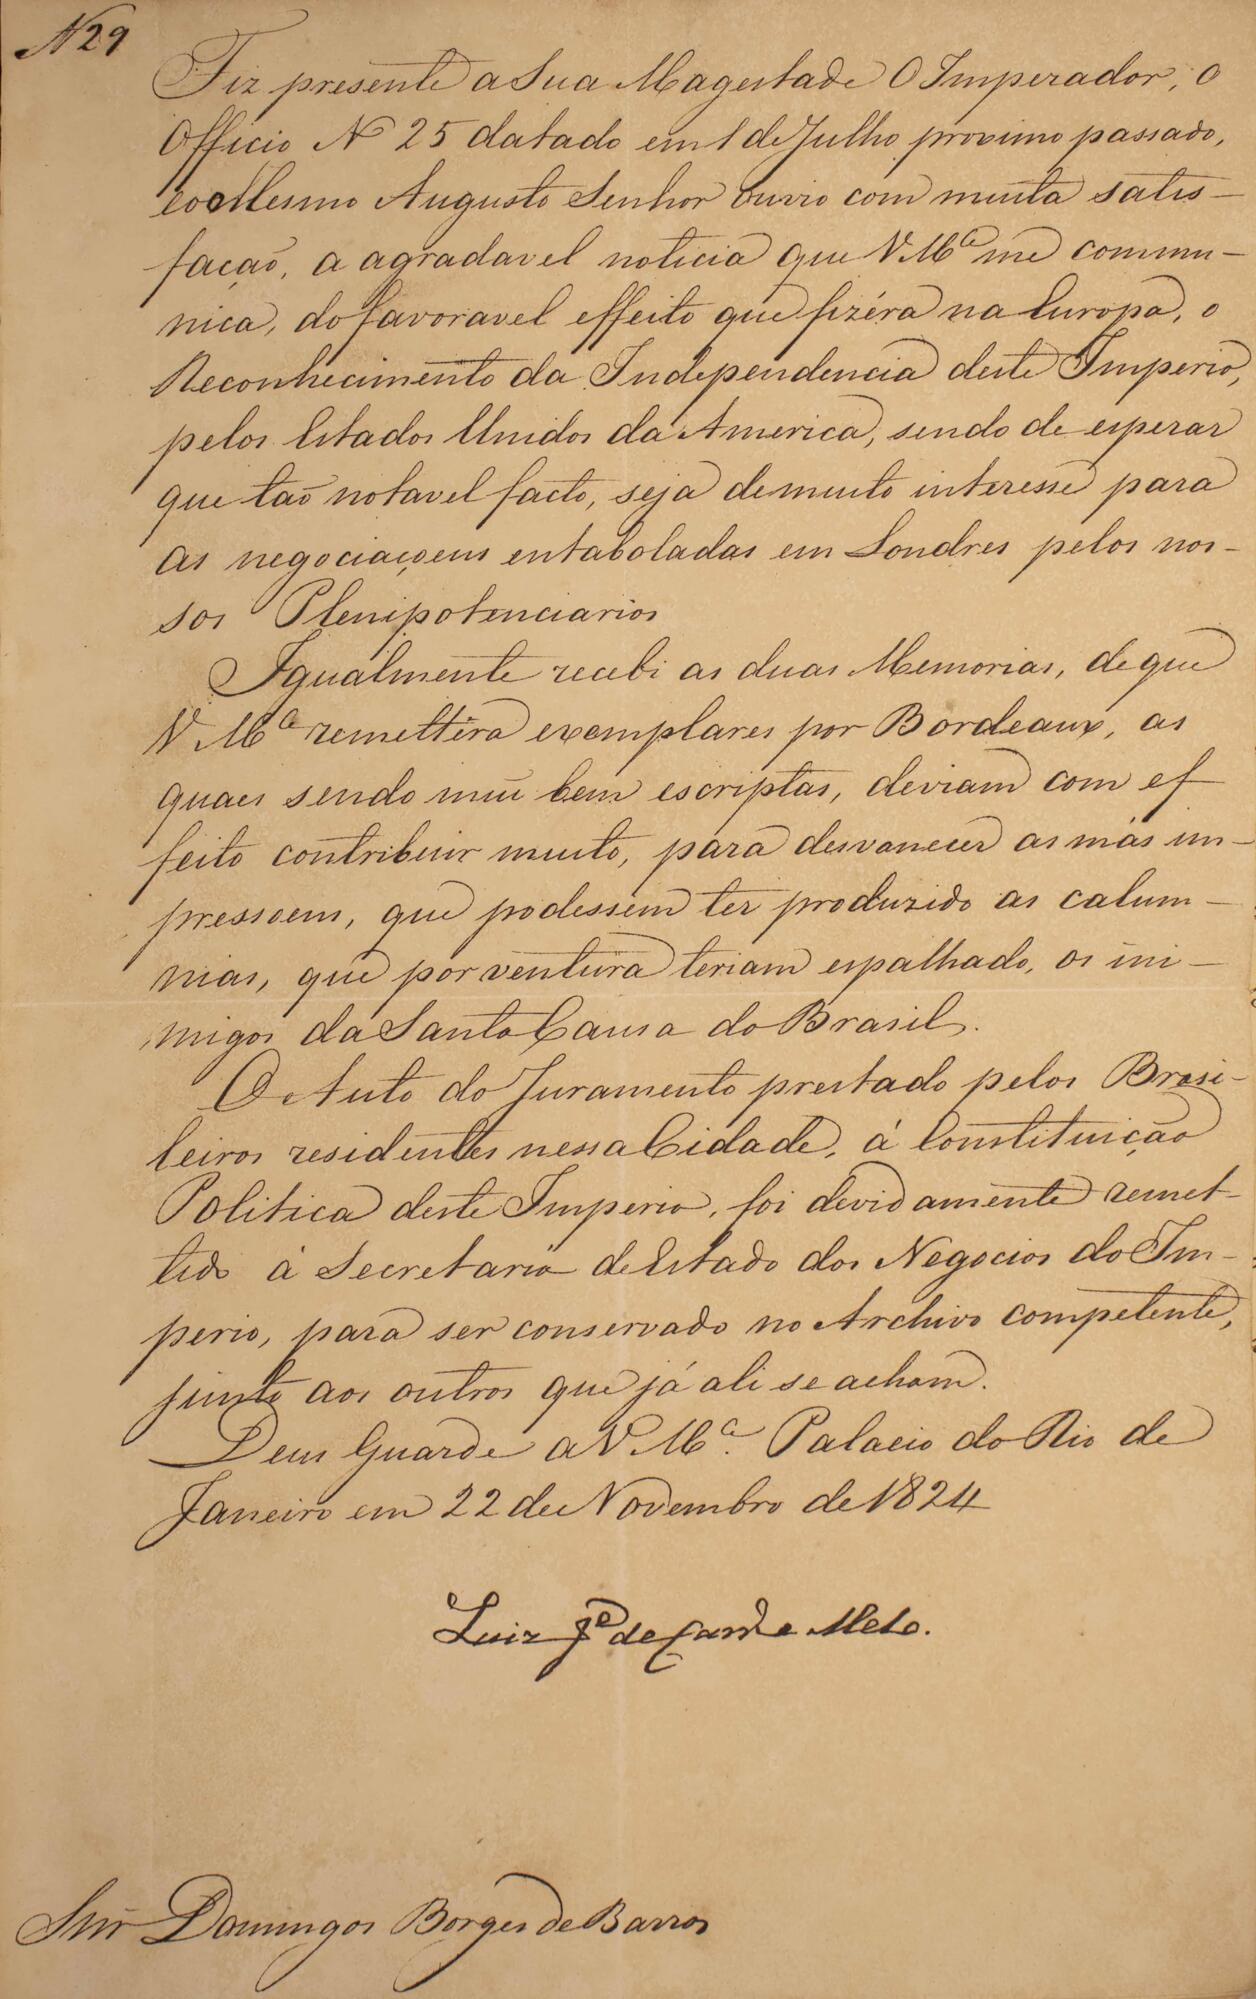 N 29
Fiz presente a Sua Magestade O Imperador, o
Officio N 25 datado em 1 de Julho proximo passado,
e o Mesmo Augusto Senhor ouvio com muita satis-
façaõ, a agradavel noticia que V Mce me commu-
nica, do favoravel effeito que fizéra na Europa, o
Reconhecimento da Independencia deste Imperio,
pelos Estados Unidos da America, sendo de esperar
que taõ notavel facto, seja de muito interesse para
as negociaçoens entaboladas em Londres pelos nos-
sos Plenipotenciarios
Igualmente recebi as duas Memorias, de que
V Mce remettera exemplares por Bordeaux, as
quaes sendo mui bem escriptas, deviam com ef
feito contribuir muito, para desvanecer as más im-
pressoens, que podessem ter produzido as calum-
nias, que por ventura teriam espalhado, os ini-
migos da Santa Causa do Brasil.
O Auto do Juramento prestado pelos Brasi-
leiros residentes nessa Cidade, á Constituição
Politica deste Imperio, foi devidamente remet-
tido á Secretaria de Estado dos Negocios do Im-
perio, para ser conservado no Archivo competente,
junto aos outros que já ali se acham.
Deus Guarde a V Mce. Palacio do Rio de
Janeiro em 22 de Novembro de 1824
Luiz Je de Carvo e Mello.
Snr Domingos Borges de Barros